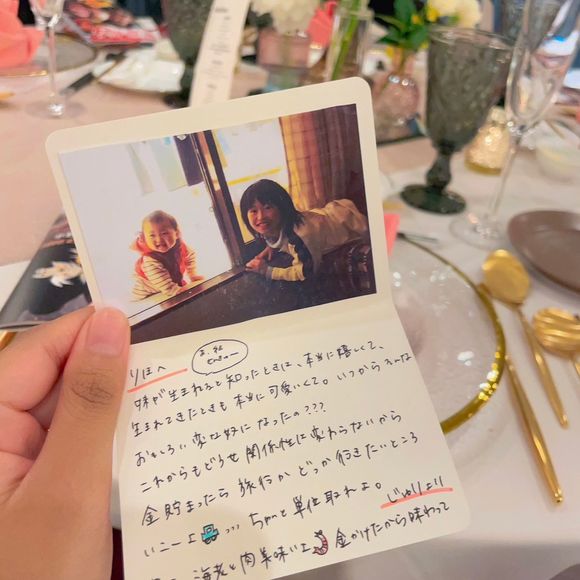 りほへ
妹が生まれると知ったときは、本当に嬉しくて、
生まれてきたときも本当に可愛いくて。いつからそんな
おもしろい変な奴になったの???
これからもどうせ関係性は変わらないから
金貯まったら旅行かどっか行きたいところ
いこーよ ちゃんと単位取れよ。
じゅりより
海老と肉美味いよ 金かけたから味わって